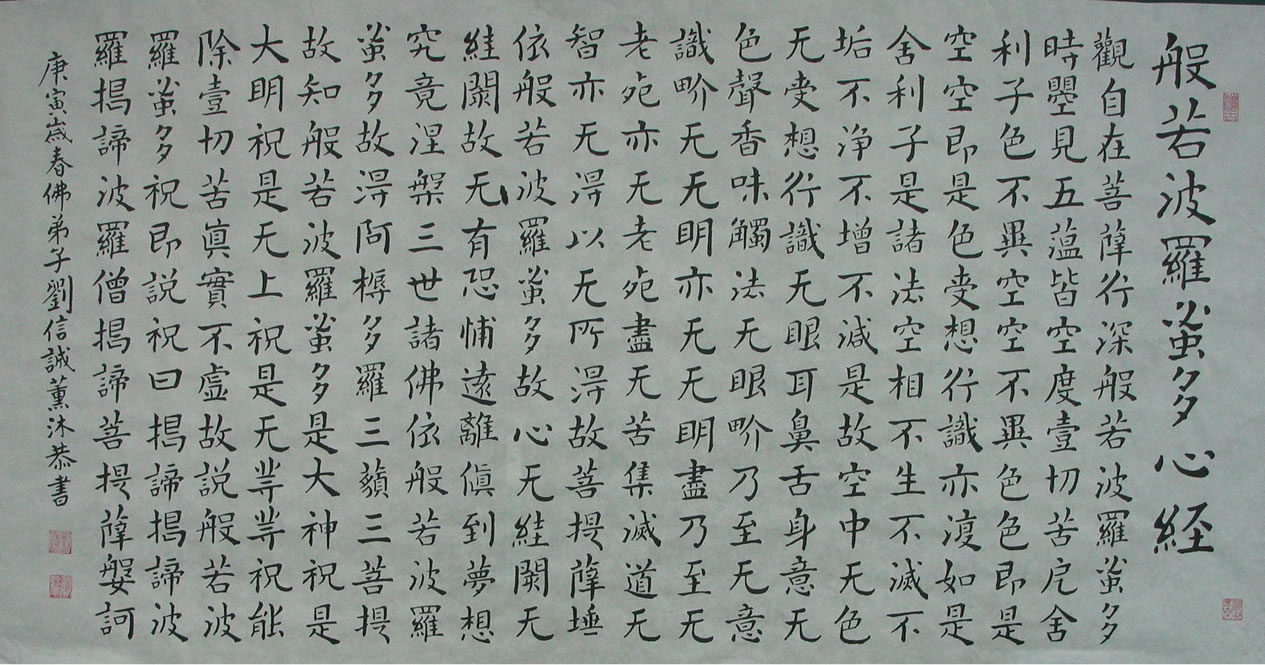 般若波羅蜜多心経
觀自在菩薩行深般若波羅蜜多
時曌見五薀皆空度壹切苦戹舍
利子色不異空空不異色色即是
空空即是色受想行識亦復如是
舍利子是諸法空相不生不滅不
垢不浄不增不減是故空中无色
无受想行識无眼耳鼻舌身意无
色聲香味觸法无眼界乃至无意
識界无无明亦无无明盡乃至无
老死亦无老死盡无苦集滅道无
智亦无得以无所得故菩提薩埵
依般若波羅蜜多故心无絓閡无
絓閡故无有恐怖遠離傎到夢想
究竟涅槃三世諸佛依般若波羅
蜜多故得阿耨多羅三藐三菩提
故知般若波羅蜜多是大神祝是
大明祝是无上祝是无等等祝能
除壹切苦眞實不虛故説般若波
羅蜜多祝即説祝曰揭諦揭諦波
羅揭諦波羅僧揭諦菩提薩婆訶
庚寅歲春佛弟子劉信誠薰沐恭書